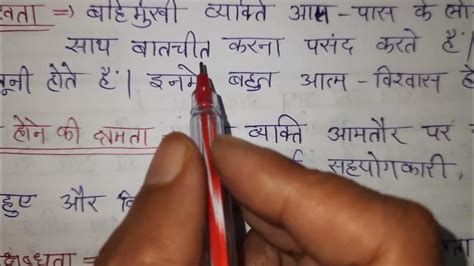 ता ⇒ बहिर्मुखी व्यक्ति आस-पास के लो
साथ बातचीत करना पसंद करते हैं|
नूनी होते हैं| इनमें बहुत आत्म-विश्वास
होने की क्षमता ⇒ व्यक्ति आमतौर पर
सहयोगकारी,
हुए और